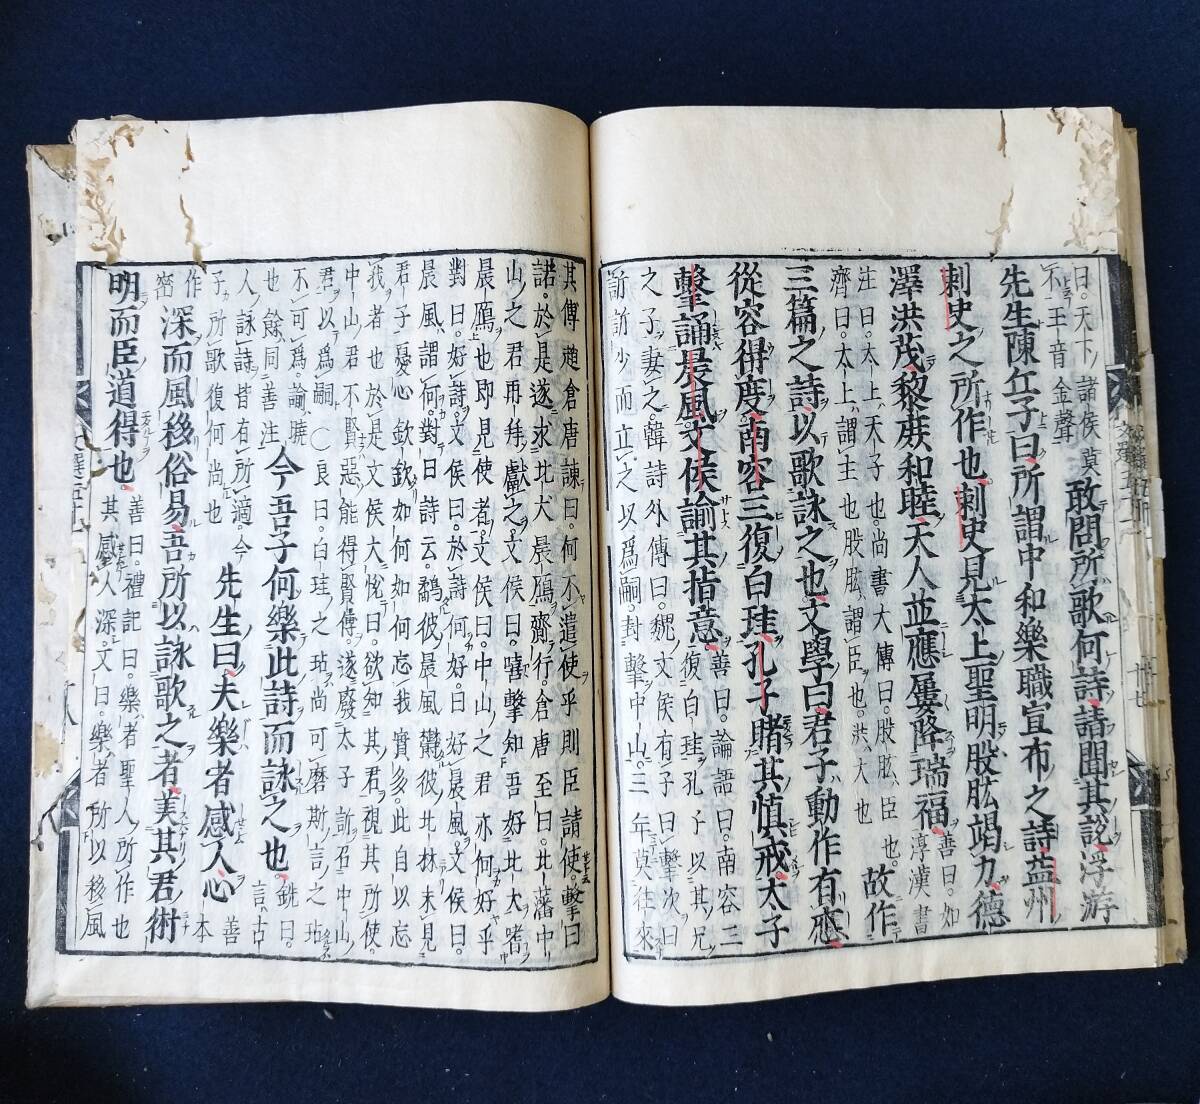 曰。天下諸侯莫
不王音金聲
敢問所歌何詩請聞其說浮游
先生陳丘子曰所謂中和樂職宣布之詩益州
刺史之所作也刺史見太上聖明股肱竭力德
澤洪茂黎庶和睦天人並應屢降瑞福
善曰。如
淳漢書
注曰。太上天子也。尚書大傳曰。股肱臣也。
濟曰。太上謂主也股肱謂臣也。洪大也
故作
三篇之詩以歌詠之也文學曰君子動作有應
從容得度南容三復白珪孔子睹其慎戒太子
擊誦晨風文侯諭其指意
善曰。論語曰。南容三
復白珪孔子以其兄
之子妻之韓詩外傳曰。魏文侯有子曰擊次曰
訢訢少而立之以爲嗣。封擊中山。三年莫往來
其傅趙倉唐諫曰。何不遣使乎則臣請使擊曰
諾。於是遂求北犬晨鴈齎行。倉唐至曰。北藩中
山之君再拜獻之。文侯曰。嘻擊知吾好北犬嗜
晨鴈也即見使者。文侯曰。中山之君亦何好乎
對曰。好詩。文侯曰。於詩何好。曰好晨風。文侯曰。
晨風謂何。對曰詩云。鷸彼晨風欝彼北林未見
君子憂心欽欽如何如何忘我實多。此自以忘
我者也於是文侯大悅曰。欲知其君視其所使。
中山君不賢惡能得賢傅。遂廢太子訢召中山
君以爲嗣〇良曰。白珪之玷尚可磨斯言之玷
不可爲。諭曉
也餘同善注
今吾子何樂此詩而詠之也
銑曰。
言古
人詠詩皆有所滴。今
子所歌復何尚也
先生曰夫樂者感人心
善
本
作
密
深而風移俗易吾所以詠歌之者美其君術
明而臣道得也
善曰。禮記曰。樂者聖人所作也
其感人深。文曰。樂者所以移風